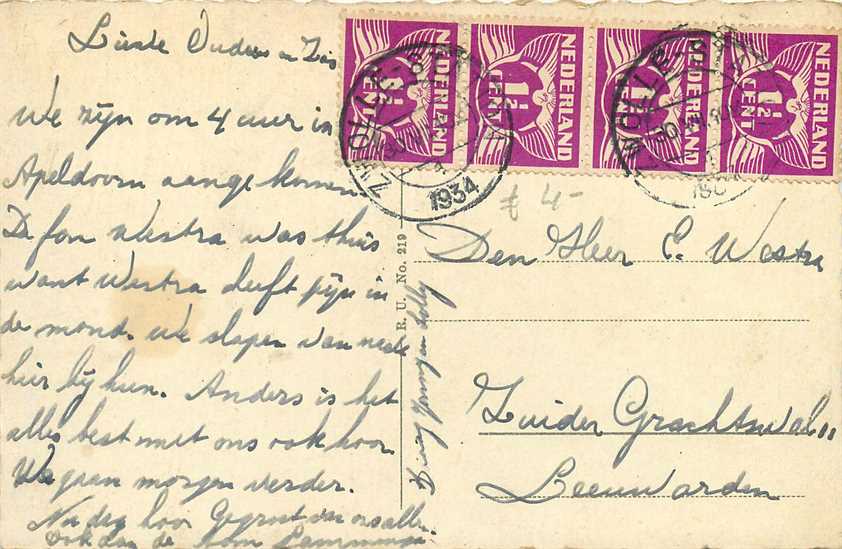 Lieste Ouders en Zus
We zijn om 4 uur in
Apeldoorn aangekomen
De fon Westra was thuis
want Westra heeft pijn in
de mond. We slapen van nacht
hier bij hun. Anders is het
alles best met ons ook hoor
We gaan morgen verder.
Nu dag hoor Gegroet van ons allen
ook aan de
en Dolly
R. U. No. 219
NEDERLAND
1½
CENT
NEDERLAND
1½
CENT
NEDERLAND
1½
CENT
NEDERLAND
1½
CENT
ZWOLLE
1934
ZWOLLE
4-
Den Heer E. Westra
Zuider Grachtswal 11
Leeuwarden